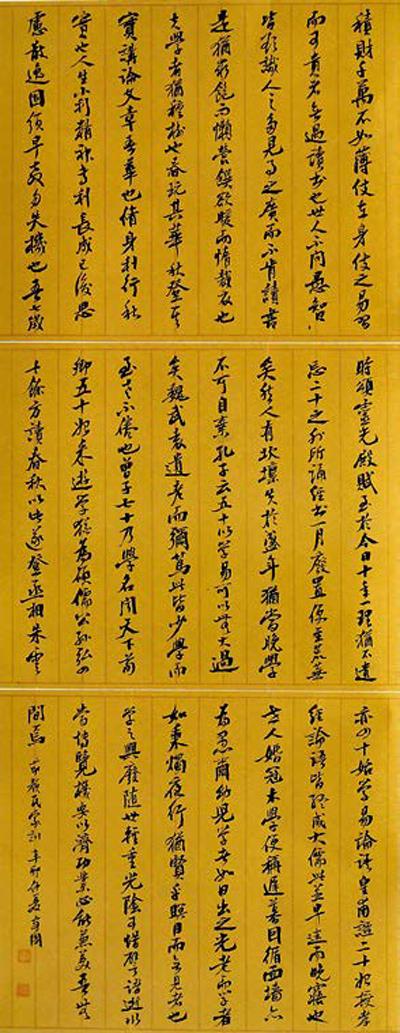 積財千萬不如薄伎在身伎之易習
而可貴者無過讀書也世人不問愚智
皆欲識人之多見事之廣而不肯讀書
是猶求飽而懶營饌欲暖而惰裁衣也
夫學者猶種樹也春玩其華秋登其
實講論文章春華也修身利行秋
實也人生小幼精神專利長成已後思
慮散逸固須早教勿失機也吾七歲
時誦靈光殿賦至於今日十年一理猶不遺
忘二十之外所誦經書一月廢置便至荒蕪
矣然人有坎壈失於盛年猶當晚學
不可自棄孔子云五十以學易可以無大過
矣魏武袁遺老而彌篤此皆少學而
至老不倦也曾子七十乃學名聞天下荀
卿五十始來遊學猶為碩儒公孫弘四
十餘方讀春秋以此遂登丞相朱雲
亦四十始學易論語皇甫謐二十始授孝
經論語皆終成大儒此並早迷而晚寤也
世人婚冠未學便稱遲暮因循面墻亦
為愚爾幼而學者如日出之光老而學者
如秉燭夜行猶賢乎瞑目而無見者也
學之興廢隨世輕重光陰可惜譬諸逝水
當博覽機要以濟功業必能兼美吾無
間焉 節顏氏家訓 辛卯仲夏